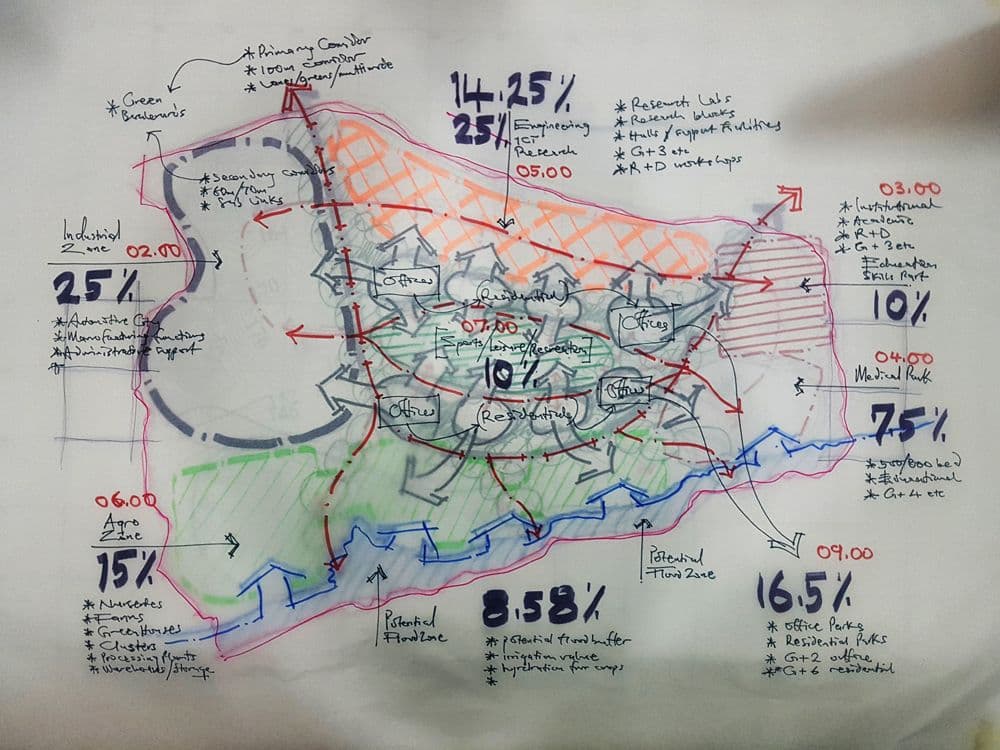 * Primary Corridor
* 100m corridor
* Green
14.25%
25%
Engineering
ICT
Research
05.00
* Research Labs
* Research blocks
* Halls / support Facilities
* G+3 etc
* R+D workshops
* Secondary corridors
* 60m/70m
* Sub links
03.00
* Institutional
* Academic
* R+D
* G+3 etc
* Education
Skills Park
10%
Industrial
Zone
02.00
25%
* Automotive City
* Manufacturing functions
* Administrative support
*
Offices
Residential
Offices
07.00
[Sports/Leisure/Recreation]
10%
Offices
Residentials
Offices
04.00
Medical Park
7.5%
* 500/600 bed
* G+4 etc
06.00
Agro
Zone
15%
* Nurseries
* Farms
* GreenHouses
* Clusters
* Processing plants
* Warehouses/storage
Potential
Flood Zone
Potential
Flood Zone
8.58%
* potential flood buffer
* irrigation value
* hydration for crops
*
09.00
16.5%
* Office Parks
* Residential Parks
* G+2 office
* G+6 residential